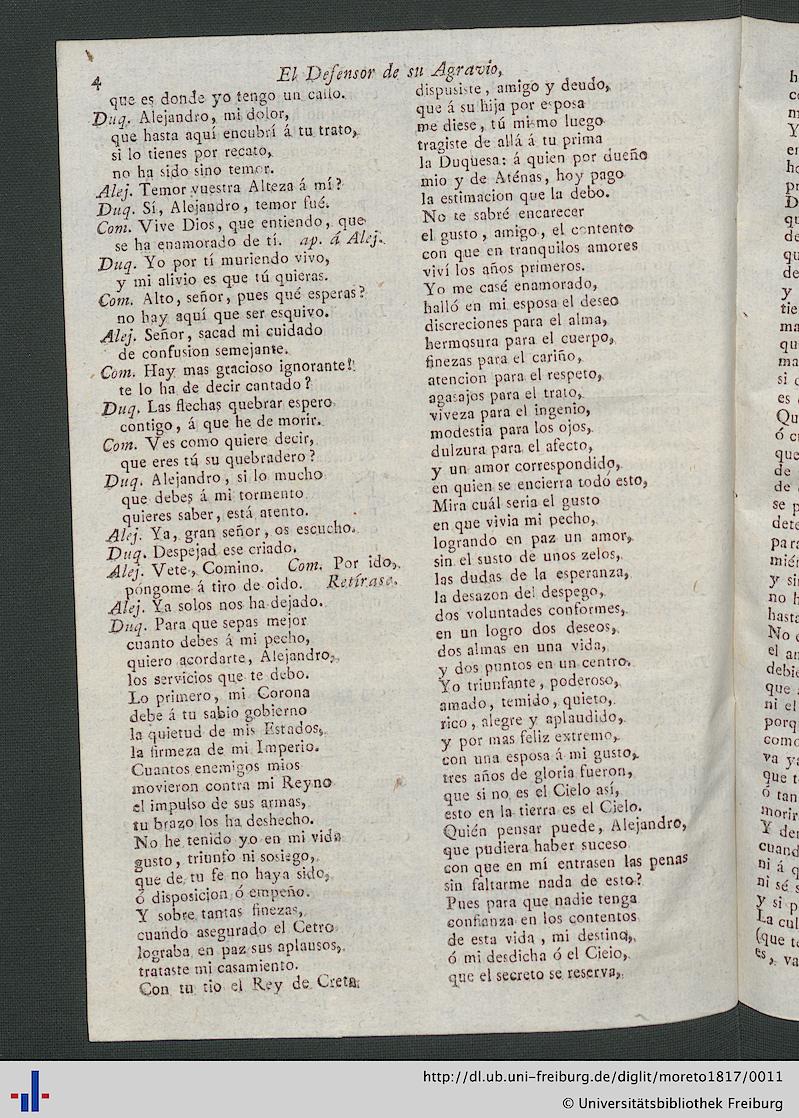 4
El Defensor de su Agravio,
que es donde yo tengo un callo.
Duq. Alejandro, mi dolor,
que hasta aquí encubrí á tu trato,
si lo tienes por recato,
no ha sido sino temor.
Alej. Temor vuestra Alteza á mí?
Duq. Sí, Alejandro, temor fué.
Com. Vive Dios, que entiendo, que
se ha enamorado de tí. ap. á Alej.
Duq. Yo por tí muriendo vivo,
y mi alivio es que tú quieras.
Com. Alto, señor, pues qué esperas?
no hay aquí que ser esquivo.
Alej. Señor, sacad mi cuidado
de confusion semejante.
Com. Hay mas gracioso ignorante!
te lo ha de decir cantado?
Duq. Las flechas quebrar espero
contigo, á que he de morir.
Com. Ves como quiere decir,
que eres tú su quebradero?
Duq. Alejandro, si lo mucho
que debes á mi tormento
quieres saber, está atento.
Alej. Ya, gran señor, os escucho.
Duq. Despejad ese criado.
Alej. Vete, Comino. Com. Por ido,
póngome á tiro de oido. Retírase.
Alej. Ya solos nos ha dejado.
Duq. Para que sepas mejor
cuanto debes á mi pecho,
quiero acordarte, Alejandro,
los servicios que te debo.
Lo primero, mi Corona
debe á tu sabio gobierno
la quietud de mis Estados,
la firmeza de mi Imperio.
Cuantos enemigos mios
movieron contra mi Reyno
el impulso de sus armas,
tu brazo los ha deshecho.
No he tenido yo en mi vida
gusto, triunfo ni sosiego,
que de tu fe no haya sido,
ó disposicion ó empeño.
Y sobre tantas finezas,
cuando asegurado el Cetro
lograba en paz sus aplausos,
trataste mi casamiento.
Con tu tio el Rey de Creta
dispusiste, amigo y deudo,
que á su hija por esposa
me diese, tú mismo luego
tragiste de allá á tu prima
la Duquesa: á quien por dueño
mio y de Aténas, hoy pago
la estimacion que la debo.
No te sabré encarecer
el gusto, amigo, el contento
con que en tranquilos amores
viví los años primeros.
Yo me casé enamorado,
halló en mi esposa el deseo
discreciones para el alma,
hermosura para el cuerpo,
finezas para el cariño,
atencion para el respeto,
agasajos para el trato,
viveza para el ingenio,
modestia para los ojos,
dulzura para el afecto,
y un amor correspondido,
en quien se encierra todo esto,
Mira cuál seria el gusto
en que vivia mi pecho,
logrando en paz un amor,
sin el susto de unos zelos,
las dudas de la esperanza,
la desazon del despego,
dos voluntades conformes,
en un logro dos deseos,
dos almas en una vida,
y dos puntos en un centro.
Yo triunfante, poderoso,
amado, temido, quieto,
rico, alegre y aplaudido,
y por mas feliz extremo,
con una esposa á mi gusto,
tres años de gloria fueron,
que si no es el Cielo así,
esto en la tierra es el Cielo.
Quién pensar puede, Alejandro,
que pudiera haber suceso
con que en mí entrasen las penas
sin faltarme nada de esto?
Pues para que nadie tenga
confianza en los contentos
de esta vida, mi destino,
ó mi desdicha ó el Cielo,
que el secreto se reserva,
http://dl.ub.uni-freiburg.de/diglit/moreto1817/0011
© Universitätsbibliothek Freiburg